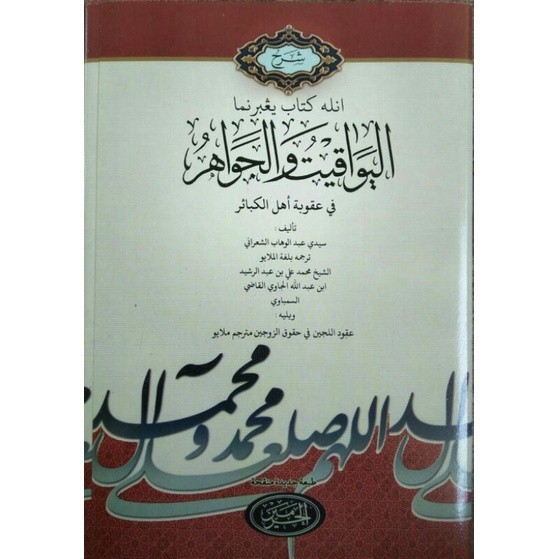 شرح
انله كتاب يڠبرنما
اليواقيت والجواهر
في عقوبة أهل الكبائر
تأليف :
سيدي عبد الوهاب الشعراني
ترجمه بلغة الملايو
الشيخ محمد علي بن عبد الرشيد
ابن عبد الله الجاوي القاضي
السمباوي
ويليه :
عقود اللجين في حقوق الزوجين مترجم ملايو
اللهم صل على محمد و محمد
طبعة جديدة منقحة
الحرمين